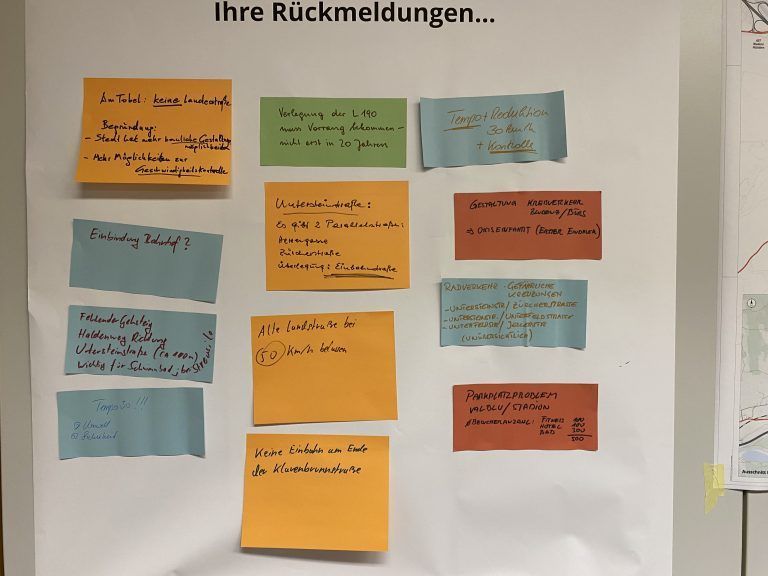 Ihre Rückmeldungen...
Am Tobel: keine Landesstraße
Begründung:
- Stadt hat mehr bauliche Gestaltungs
möglichkeiten
- Mehr Möglichkeiten zur
Geschwindigkeitskontrolle
Einbindung Bahnhof?
Fehlender Gehsteig
Haldenweg Richtung
Untersteinstraße (ca 100m)
wichtig für Schwimmbad,
Tempo 30!!!
Umwelt
Sicherheit
Verlegung der L 190
muss Vorrang bekommen -
nicht erst in 20 Jahren
Untersteinstraße:
Es gibt 2 Parallelstraßen:
Herrengasse
Zürcherstraße
Überlegung: Einbahnstraße
Alte Landstraße bei
50 Km/h belassen
Keine Einbahn am Ende
der Klarenbrunnstraße
Tempo + Reduktion
30 km/h
+ Kontrolle
GESTALTUNG KREISVERKEHR
BLUDENZ/BÜRS
⇒ ORTSEINFAHRT (ERSTER EINDRUCK)
RADVERKEHR - GEFÄHRLICHE
KREUZUNGEN
- UNTERSTEINSTR / ZÜRCHERSTRASSE
- UNTERSTEINSTR. / UNTERFELDSTRASSE
- UNTERFELDSTR /
(UNÜBERSICHTLICH)
PARKPLATZPROBLEM
VALBLU / STADION
BESUCHERANZAHL: FITNESS 100
HOTEL 100
BAD 300
500
Ausschnitt